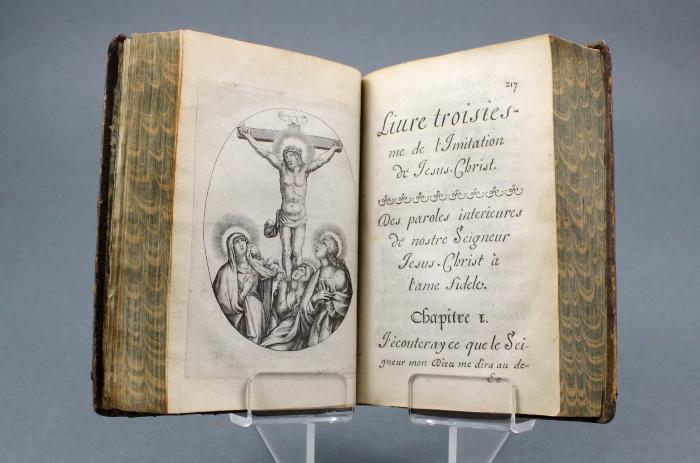 217
Liure troisies-
me de l'Imitation
de Jesus-Christ.
Des paroles interieures
de nostre Seigneur
Jesus-Christ à
lame fidele.
Chapitre I.
J'écouteray ce que le Sei-
gneur mon Dieu me dira au de-